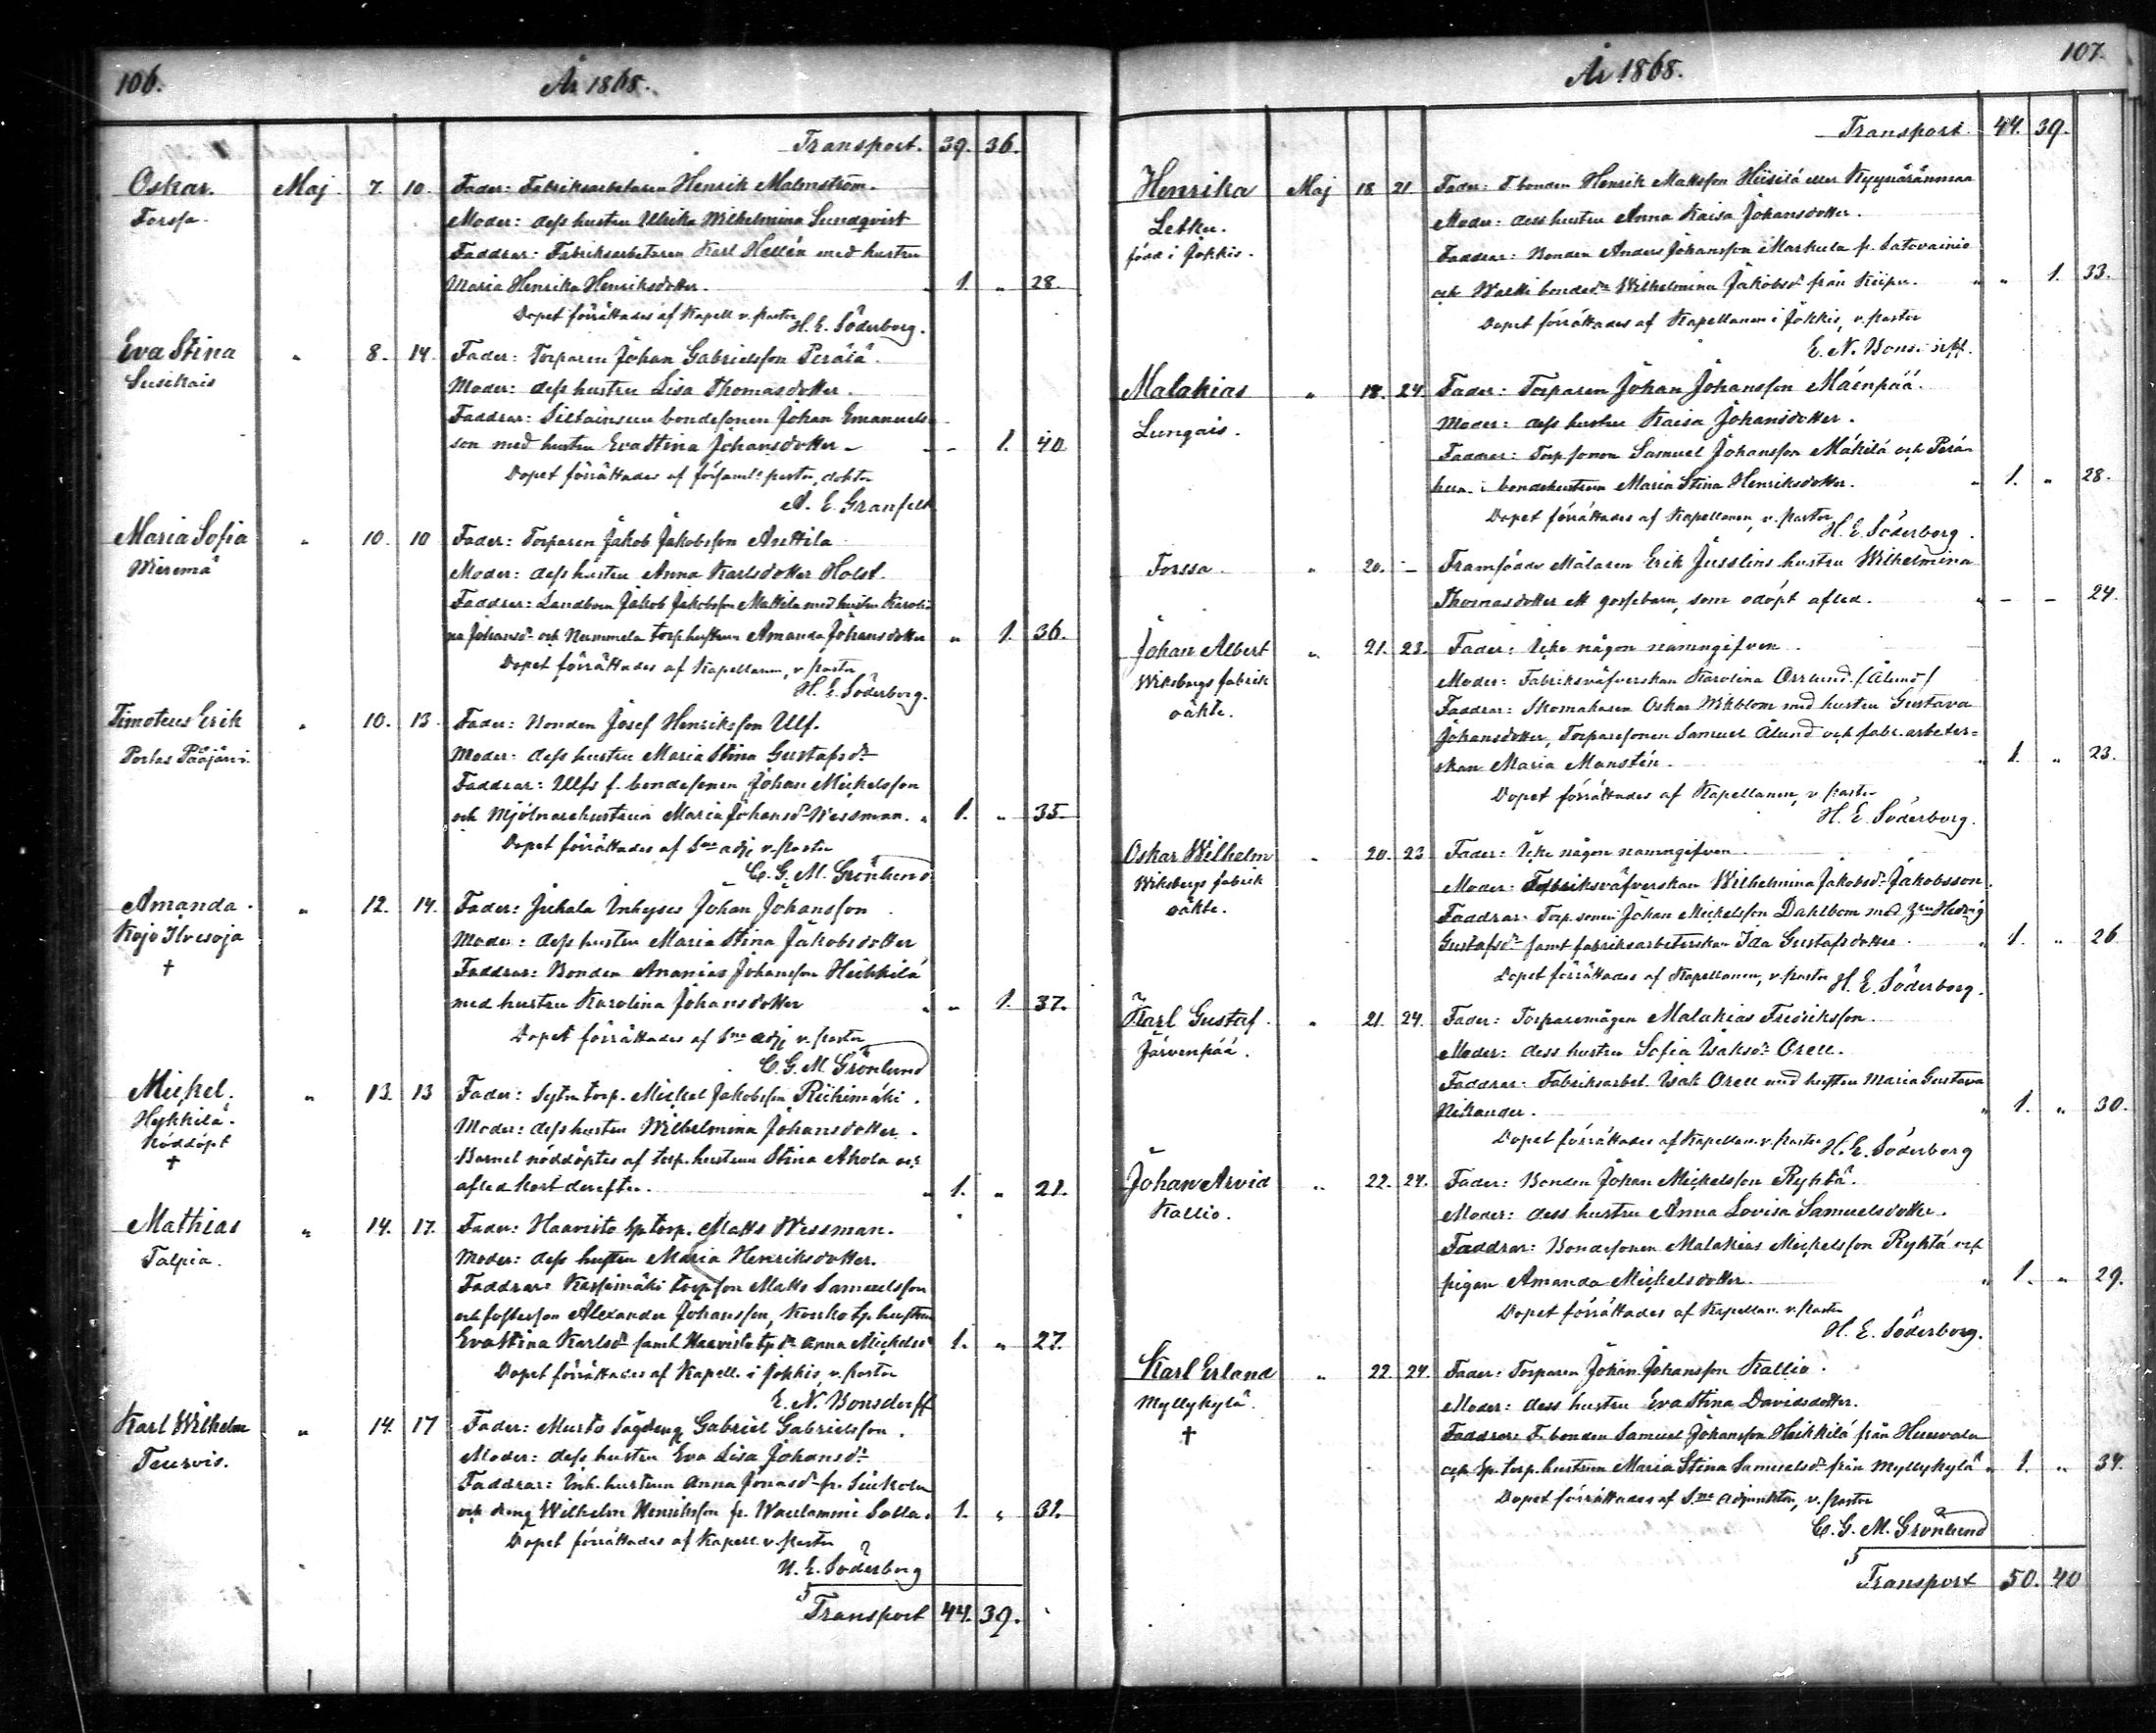 106.
År 1868.
Transport. 39. 36.
Oskar. Maj. 7. 10. Fader: Fabriksarbetaren Henrik Malmström.
Forssa. Moder: dess hustru Ulrika Wilhelmina Sundqvist
Faddrar: Fabriksarbetaren Karl Hellén med hustru
Maria Henrika Henriksdotter. " 1. " 28.
Dopet förrättades af Kapell. v. pastor
H. E. Söderborg.
Eva Stina " 8. 14. Fader: Torparen Johan Gabrielsson Perälä.
Susikais Moder: dess hustru Lisa Thomasdotter.
Faddrar: bondesonen Johan Emanuels-
son med hustru Eva Stina Johansdotter - - 1. 40
Dopet förrättades af församl: pastor, doktor
A. E. Granfelt
Maria Sofia " 10. 10 Fader: Torparen Jakob Jakobsson Anttila
Wieremä Moder: dess hustru Anna Karlsdotter Holst.
Faddrar: Landbon Jakob Jakobsson Mattila med hustru Karoli-
na Johansd:r och Nummela torp.hustrun Amanda Johansdotter " 1. 36.
Dopet förrättades af Kapellanen, v. Pastor
H. E. Söderborg.
Timoteus Erik " 10. 13. Fader: Bonden Josef Henriksson Ulf.
Portas Pääjärvi. Moder: dess hustru Maria Stina Gustafsd:r
Faddrar: Ulfs f. bondesonen Johan Mickelsson
och Mjölnarehustrun Maria Johansd:r Wessman. " 1. " 35.
Dopet förrättades af S:ne adj. v. Pastor
C. G. M. Grönlund
Amanda. " 12. 14. Fader: Juhala Inhyses Johan Johansson
Kojo Ilvesoja Moder: dess hustru Maria Stina Jakobsdotter
† Faddrar: Bonden Ananias Johansson Heikkilä
med hustru Karolina Johansdotter " - 1. 37.
Dopet förrättades af S:ne adj. v. Pastor
C. G. M. Grönlund
Mickel. " 13. 13 Fader: Sytn. torp. Mickel Jakobsson Riihimäki.
Hykkilä. Moder: dess hustru Wilhelmina Johansdotter.
Nöddöpt Barnet nöddöptes af torp. hustrun Stina Ahola och
† afled kort derefter. " 1. " 21.
Mathias " 14. 17. Fader: Haavisto sp.torp. Matts Wessman.
Talpia. Moder: dess hustru Maria Henriksdotter.
Faddrar: torp.son Matts Samuelsson
och fosterson Alexander Johansson, Kouko tp. hustrun
Eva Stina Karlsd:r samt Haavisto tp. d:r Anna Mickelsd:r 1. " 27.
Dopet förrättades af Kapell. i Jokkis, v. Pastor
E. N. Bonsdorff
Karl Wilhelm " 14. 17 Fader: Murto Sågdreng Gabriel Gabrielsson.
Teurois. Moder: dess hustru Eva Lisa Johansd:r
Faddrar: Inh. hustrun Anna Jonasd:r fr.
och dreng Wilhelm Henriksson fr. 1. " 31.
Dopet förrättades af Kapell. v. Pastor
H. E. Söderborg
Transport 44. 39.
107.
År 1868.
Transport. 44. 39.
Henrika Maj 18 21 Fader: F. bonden Henrik Mattsson Hiisilä eller Kyynäränmaa
Letku. Moder: dess hustru Anna Kaisa Johansdotter.
född i Jokkis. Faddrar: Bonden Anders Johansson Markula fr. Latovainio
och bonded:r Wilhelmina Jakobsd:r från Kiipu. " " 1. 33.
Dopet förrättades af Kapellanen i Jokkis, v. Pastor
E. N. Bonsdorff.
Malakias " 18. 24. Fader: Torparen Johan Johansson Mäenpää.
Lungais. Moder: dess hustru Kaisa Johansdotter.
Faddrar: Torp.sonen Samuel Johansson Mäkilä och Perä-
bondehustrun Maria Stina Henriksdotter. " 1. " 28.
Dopet förrättades af Kapellanen, v. Pastor
H. E. Söderborg.
Forssa. " 20. - Framfödde Målaren Erik Jusslins hustru Wilhelmina
Thomasdotter ett gossebarn, som odöpt afled. " - - 24.
Johan Albert " 21. 23. Fader: Icke någon namngifven.
Wiksbergs fabrik Moder: Fabriksväfverskan Karolina Orrlund (Ålund)
oäkte. Faddrar: Skomakaren Oskar Wikblom med hustru Gustava
Johansdotter, Torparesonen Samuel Ålund och fabr.arbeter-
skan Maria Manstén. " 1. " 23.
Dopet förrättades af Kapellanen, v Pastor
H. E. Söderborg.
Oskar Wilhelm " 20. 23 Fader: Icke någon namngifven.
Wiksbergs fabrik Moder: Fabriksväfverskan Wilhelmina Jakobsd:r Jakobsson.
oäkte. Faddrar: Torp.sonen Johan Mickelsson Dahlbom med Hedvig
Gustafsd:r samt fabriksarbeterskan Ida Gustafsdotter. " 1. " 26
Dopet förrättades af Kapellanen, v. Pastor H. E. Söderborg.
Karl Gustaf. " 21. 24. Fader: Torparemågen Malakias Fredriksson.
Järvenpää. Moder: dess hustru Sofia Isaksd:r Orell.
Faddrar: Fabriksarbet. Isak Orell med hustru Maria Gustava
Nikander. " 1. " 30.
Dopet förrättades af Kapellan. v. Pastor H. E. Söderborg
Johan Arvid " 22. 24. Fader: Bonden Johan Mickelsson Ryhtä.
Kallio. Moder: dess hustru Anna Lovisa Samuelsdotter.
Faddrar: Bondesonen Malakias Mickelsson Ryhtä och
pigan Amanda Mickelsdotter. " 1. " 29.
Dopet förrättades af Kapellan. v. Pastor
H. E. Söderborg.
Karl Erland " 22. 24. Fader: Torparen Johan Johansson Kallio.
Myllykylä. Moder: dess hustru Eva Stina Davidsdotter.
† Faddrar: F. bonden Samuel Johansson Heikkilä från
och sp. torp.hustrun Maria Stina Samuelsd:r från Myllykylä " 1. " 34.
Dopet förrättades af S:ne adjunkten, v. Pastor
C. G. M. Grönlund
Transport 50. 40